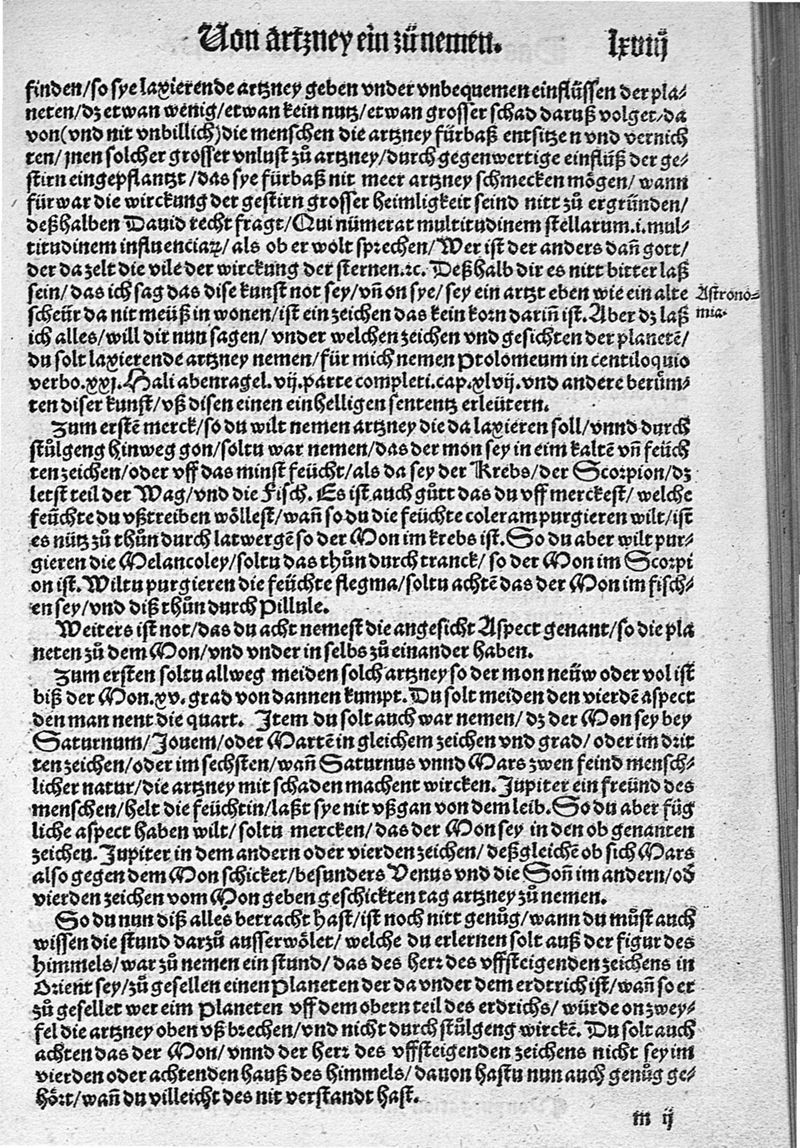 Von artzney ein zů nemen. lxviij
finden/so sye laxierende artzney geben vnder vnbequemen einflüssen der pla-
neten/dz etwan wenig/etwan kein nutz/etwan grosser schad daruß volget/da
von(vnd nit vnbillich)die menschen die artzney fürbaß entsitzen vnd vernich
ten/jnen solcher grosser vnlust zů artzney/durch gegenwertige einflüß der ge-
stirn eingepflantzt/das sye fürbaß nit meer artzney schmecken mögen/wann
fürwar die wirckung der gestirn grosser heimligkeit seind nitt zů ergründen/
deßhalben Dauid recht fragt/Qui nümerat multitudinem stellarum.i.mul-
titudinem influenciaꝝ/als ob er wölt sprechen/Wer ist der anders dañ gott/
der da zelt die vile der wirckung der sternen.ꝛc. Deßhalb dir es nitt bitter laß
sein/das ich sag das dise kunst not sey/vñ on sye/sey ein artzt eben wie ein alte
Astrono-
scheür da nit meüß in wonen/ist ein zeichen das kein korn dariñ ist. Aber dz laß
mia.
ich alles/will dir nun sagen/vnder welchen zeichen vnd gesichten der planetē/
du solt laxierende artzney nemen/für mich nemen Ptolomeum in centiloquio
verbo.xxj.Hali abenragel.vij.parte completi.cap.xlvij.vnd andere berüm-
ten diser kunst/vß disen einen einhelligen sententz erleütern.
Zum erstē merck/so du wilt nemen artzney die da laxieren soll/vnnd durch
stůlgeng hinweg gon/soltu war nemen/das der mon sey in eim kaltē vñ feüch
ten zeichen/oder vff das minst feücht/als da sey der Krebs/der Scorpion/dz
letst teil der Wag/vnd die Fisch. Es ist auch gůtt das du vff merckest/welche
feüchte du vßtreiben wöllest/wañ so du die feüchte coleram purgieren wilt/ist
es nütz zů thůn durch latwergē so der Mon im krebs ist. So du aber wilt pur-
gieren die Melancoley/soltu das thůn durch tranck/so der Mon im Scorpi
on ist. Wiltu purgieren die feüchte flegma/soltu achtē das der Mon im fisch-
en sey/vnd diß thůn durch Pillule.
Weiters ist not/das du acht nemest die angesicht Aspect genant/so die pla
neten zů dem Mon/vnd vnder in selbs zů einander haben.
Zum ersten soltu allweg meiden solch artzney so der mon neüw oder vol ist
biß der Mon.xv.grad von dannen kumpt. Du solt meiden den vierdē aspect
den man nent die quart. Item du solt auch war nemen/dz der Mon sey bey
Saturnum/Jouem/oder Martē in gleichem zeichen vnd grad/oder im drit
ten zeichen/oder im sechsten/wañ Saturnus vnnd Mars zwen feind mensch-
licher natur/die artzney mit schaden machent wircken. Jupiter ein freünd des
menschen/helt die feüchtin/laßt sye nit vßgan von dem leib. So du aber füg
liche aspect haben wilt/soltu mercken/das der Mon sey in den ob genanten
zeichen. Jupiter in dem andern oder vierden zeichen/deßgleichē ob sich Mars
also gegen dem Mon schicket/besunders Venus vnd die Soñ im andern/oď
vierden zeichen vom Mon geben geschickten tag artzney zů nemen.
So du nun diß alles betracht hast/ist noch nitt genůg/wann du můst auch
wissen die stund darzů ausserwölet/welche du erlernen solt auß der figur des
himmels/war zů nemen ein stund/das des herr des vffsteigenden zeichens in
Orient sey/zů gesellen einen Planeten der da vnder dem erdtrich ist/wañ so er
zů gesellet wer eim Planeten vff dem obern teil des erdrichs/würde on zwey-
fel die artzney oben vß brechen/vnd nicht durch stůlgeng wirckē. Du solt auch
achten das der Mon/vnnd der herr des vffsteigenden zeichens nicht sey im
vierden oder achtenden hauß des himmels/dauon hastu nun auch genůg ge-
hört/wañ du villeicht des nit verstandt hast.
m ij